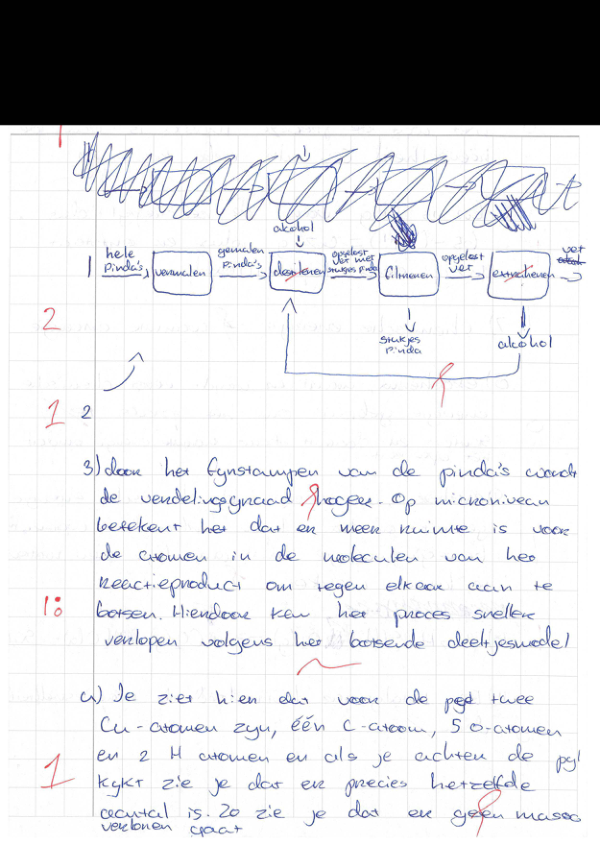 alkohol
hele pinda's
vermalen
gemalen pinda's
opgelost vet met stukjes pinda
filtreren
opgelost vet
extraheren
vet
stukjes pinda
alkohol
1
2
1 2
3) door het fijnstampen van de pinda's wordt
de verdelingsgraad hoger. Op microniveau
betekent het dat er meer ruimte is voor
de atomen in de moleculen van het
reactieproduct om tegen elkaar aan te
botsen. Hierdoor kan het proces sneller
verlopen volgens het botsende deeltjesmodel
1
Je ziet hier dat voor de pijl twee
Cu-atomen zijn, één C-atoom, 5 O-atomen
en 2 H atomen en als je achter de pijl
kijkt zie je dat er precies hetzelfde
1
aantal is. Zo zie je dat er geen massa
verloren gaat